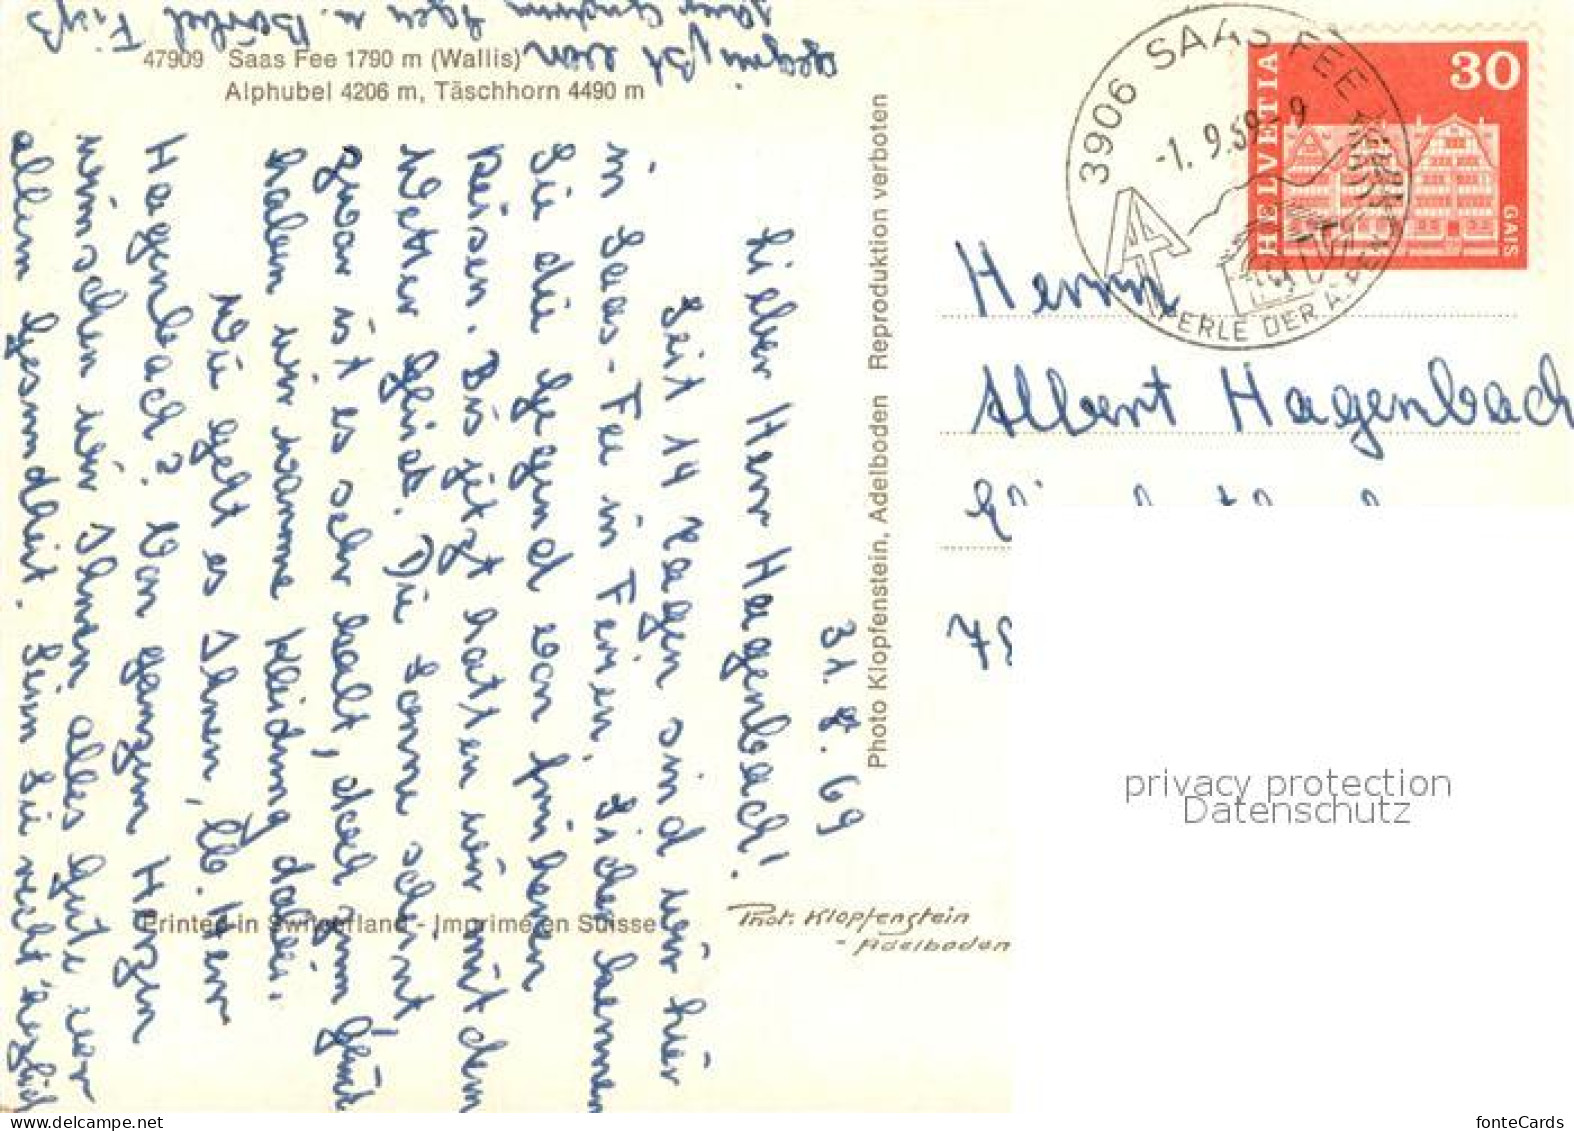 47909 Saas Fee 1790 m (Wallis)
Alphubel 4206 m, Täschhorn 4490 m
31. 8. 69
Lieber Herr Hagenbach!
Seit 14 Tagen sind wir hier
in Saas-Fee in Ferien. Sicher kennen
Sie die Gegend von früheren
Reisen. Bis jetzt hatten wir mit dem
Wetter Glück. Die Sonne scheint,
zwar ist es sehr kalt, doch zum Glück
haben wir warme Kleidung dabei.
Wie geht es Ihnen, lb. Herr
Hagenbach? Von ganzem Herzen
wünschen wir Ihnen alles Gute vor
allem Gesundheit. Seien Sie recht herzlich
gegrüßt von
u. Bärbel
Photo Klopfenstein, Adelboden Reproduktion verboten
Printed in Switzerland - Imprimé en Suisse
Phot. Klopfenstein
- Adelboden
3906 SAAS FEE
-1. 9.69-9
PERLE DER ALPEN
HELVETIA
30
GAIS
Herrn
Albert Hagenbach
privacy protection
Datenschutz
fonteCards